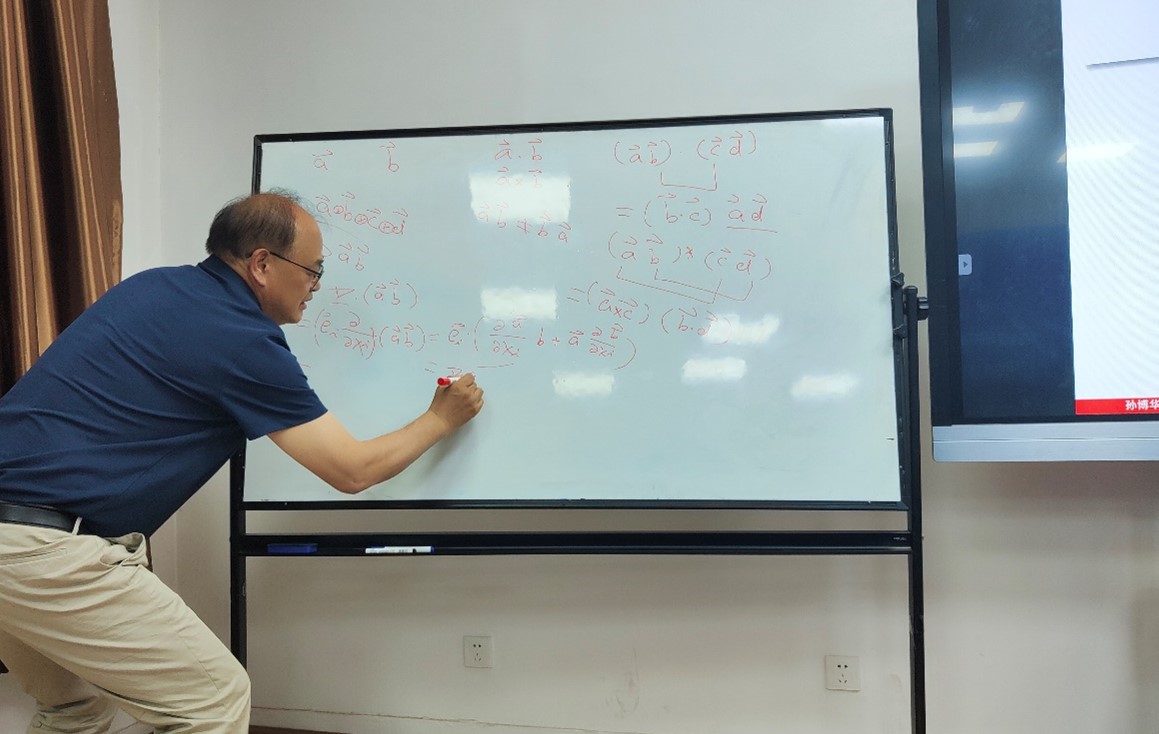 a⃗ b⃗ a⃗ · b⃗ (a⃗ b⃗) · (c⃗ d⃗)
a⃗⊗b⃗⊗c⃗⊗d⃗ a⃗ b⃗ ≠ b⃗ a⃗ = (b⃗ · c⃗) a⃗ d⃗
a⃗ b⃗ (a⃗ b⃗)* (c⃗ d⃗)
∇ · (a⃗ b⃗) = (a⃗ × c⃗) (b⃗ ·
= (e⃗ᵢ ∂/∂xᵢ)(a⃗ b⃗) = e⃗ᵢ · (∂a⃗/∂xᵢ b + a⃗ ∂b⃗/∂xᵢ)
=
孙博华